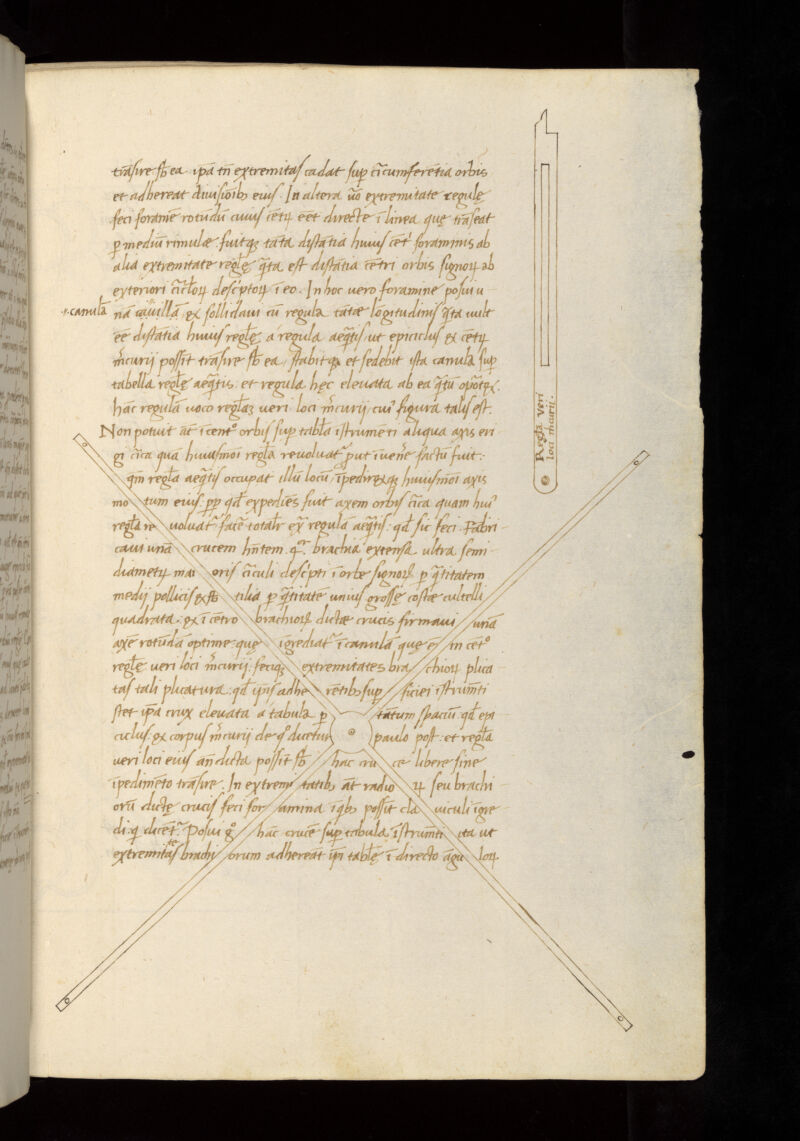 trāsire sb ea. ipā tn̄ extremitas cadat sup̄ cīrcumferētia orbis
et adhereat diuisiōib, eius. In altera ūo extremitate regulę
feci foramē rotūdū cuius cētꝝ eēt directe ī linea quę trāseat
ꝑ mediū rimulæ. fuitqꝫ tāta distātia huius cēt foraminis ab
alia extremitate reglę q̄ta est distātia cētri orbis signoꝝ ab
exteriori cīrcloꝝ descptoꝝ ī eo. In hoc uero foramine posui u
·i·canulā
nā cauillā, et sollidaui cū regula tātæ lōgitudinis q̄ta uult
eē distātia huius reglę. a regula aeq̄tis, ut epiciclus et cētꝝ
m̄curij possit trāsire sb ea, stabitqꝫ et sedebit ista canula sup̄
tabella reglę aeq̄tis. et regula hęc eleuata ab ea q̄tū opotꝫ.
hāc regulā uoco reglāꝫ ueri loci m̄curij cui figura talis est.
Regla ueri
loci mcurij.
Non potuit at ī cent° orbis sup̄ tabla īstrumēti aliqua axis eri
gi cīca quā huiusmōi regla reuoluat put īuēire factū fuit.
qm̄ regla aeq̄tis occupat illū locū, īpediretqꝫ huiusmōi axis
mo tum eius. ꝓp qd expediēs fuit axem orbis cīca quam hui
regla re uoluat facē totalr ext regulā aeq̄tis. qd sic feci. Fabri
caui unā crucem hn̄tem qr brachia extensa ultra semi
diametꝝ mai oris cīrculi descpti ī orbe signoꝝ. ꝑ q̄titatem
medij pollicis et sb tilia ꝑ q̄titatē unius grossę costæ cultelli
quadrata. et ī cētro brachioꝝ dictæ crucis firmaui unā
axē rotūdā optime quę īgrediat ī canulā quę ē in cēt°
reglę ueri loci m̄curij. feciqꝫ extremitates bra chioꝝ plica
tas tali plicatura. qd ipīs adhe rētib, sup̄ ficiei īstrumti
stet ipā crux eleuata a tabula ꝑ tātum spaciū. qd epi
ciclus. et corpus m̄curij de q° dicetur paulo post. et regla
ueri loci eius ān dicta possit sb hac cru ce libere sine
īpedimēto trāsire. In extremi tatib, āt radio ꝝ seu brachi
orū dictę crucis feci for amina īqb, possīt cla uiculi īgre
di. q̄ dicēt. Posui g° hāc crucē sup̄ tabula īstrumti ita ut
extremitates brachi orum adhereāt ipī tablę ī directo āgu loꝝ